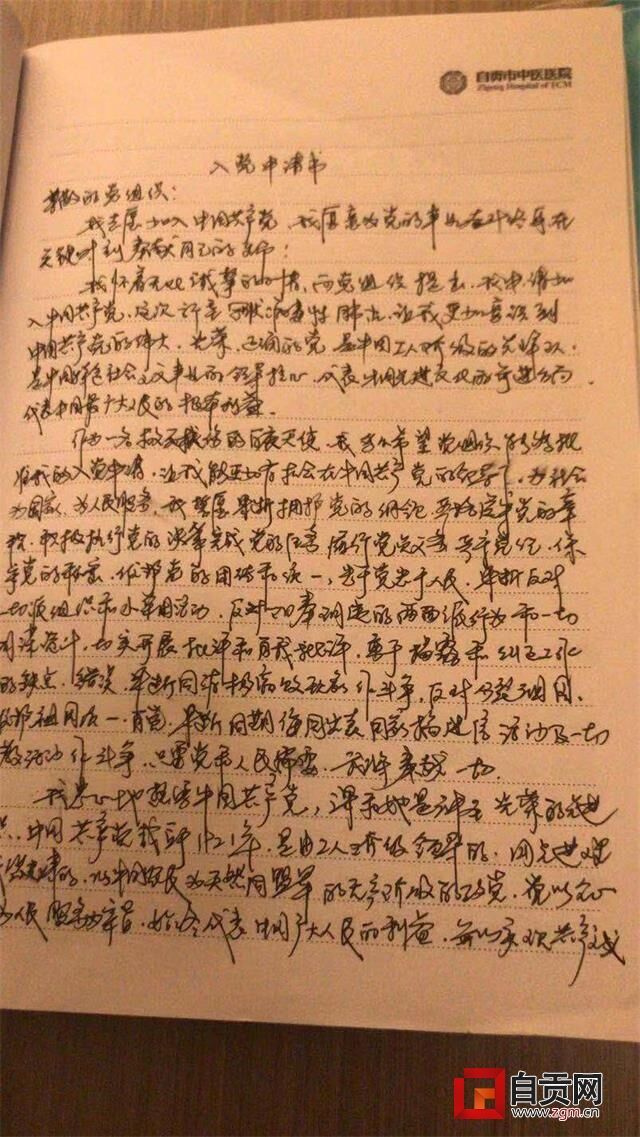 自贡市中医医院
Zigong Hospital of TCM
入党申请书
尊敬的党组织：
我志愿加入中国共产党，我愿意为党的事业奋斗终身在
关键时刻奉献自己的生命！
我怀着无比诚挚的心情，向党组织提出，我申请加
入中国共产党，这次新型冠状病毒性肺炎，让我更加意识到
中国共产党的伟大，光荣，正确的党，是中国工人阶级的先锋队，
是中国特色社会主义事业的领导核心，代表中国先进文化的前进方向，
代表中国最广大人民的根本利益。
作为一名救死扶伤的白衣天使，我 希望党组织能够批
准我的入党申请，让我能更加有机会在中国共产党的领导下，为社会
为国家，为人民服务，我誓愿坚决拥护党的纲领，严格遵守党的章
程，积极执行党的决策完成党的任务履行党员义务严守党纪，保
守党的秘密，维护党的团结和统一，忠于党忠于人民，坚决反对
一切派组织和小集团活动，反对 的两面派行为和一切
阴谋诡计，切实开展批评和自我批评，勇于揭露和纠正工作
的缺点，错误，坚决同消极腐败现象作斗争，反对分裂祖国，
维护祖国统一，
作斗争，只要党和人民需要，我将奉献一切。
我衷心地热爱中国共产党，深知她是神圣光荣的先进
中国共产党 1921年，是由工人阶级领导的，
的，以中国 为天然同盟军的无产阶级的政党，党以全心
为人民服务为宗旨，始终代表中国广大人民的利益，并以实现共产主义
自贡网
www.zgm.cn